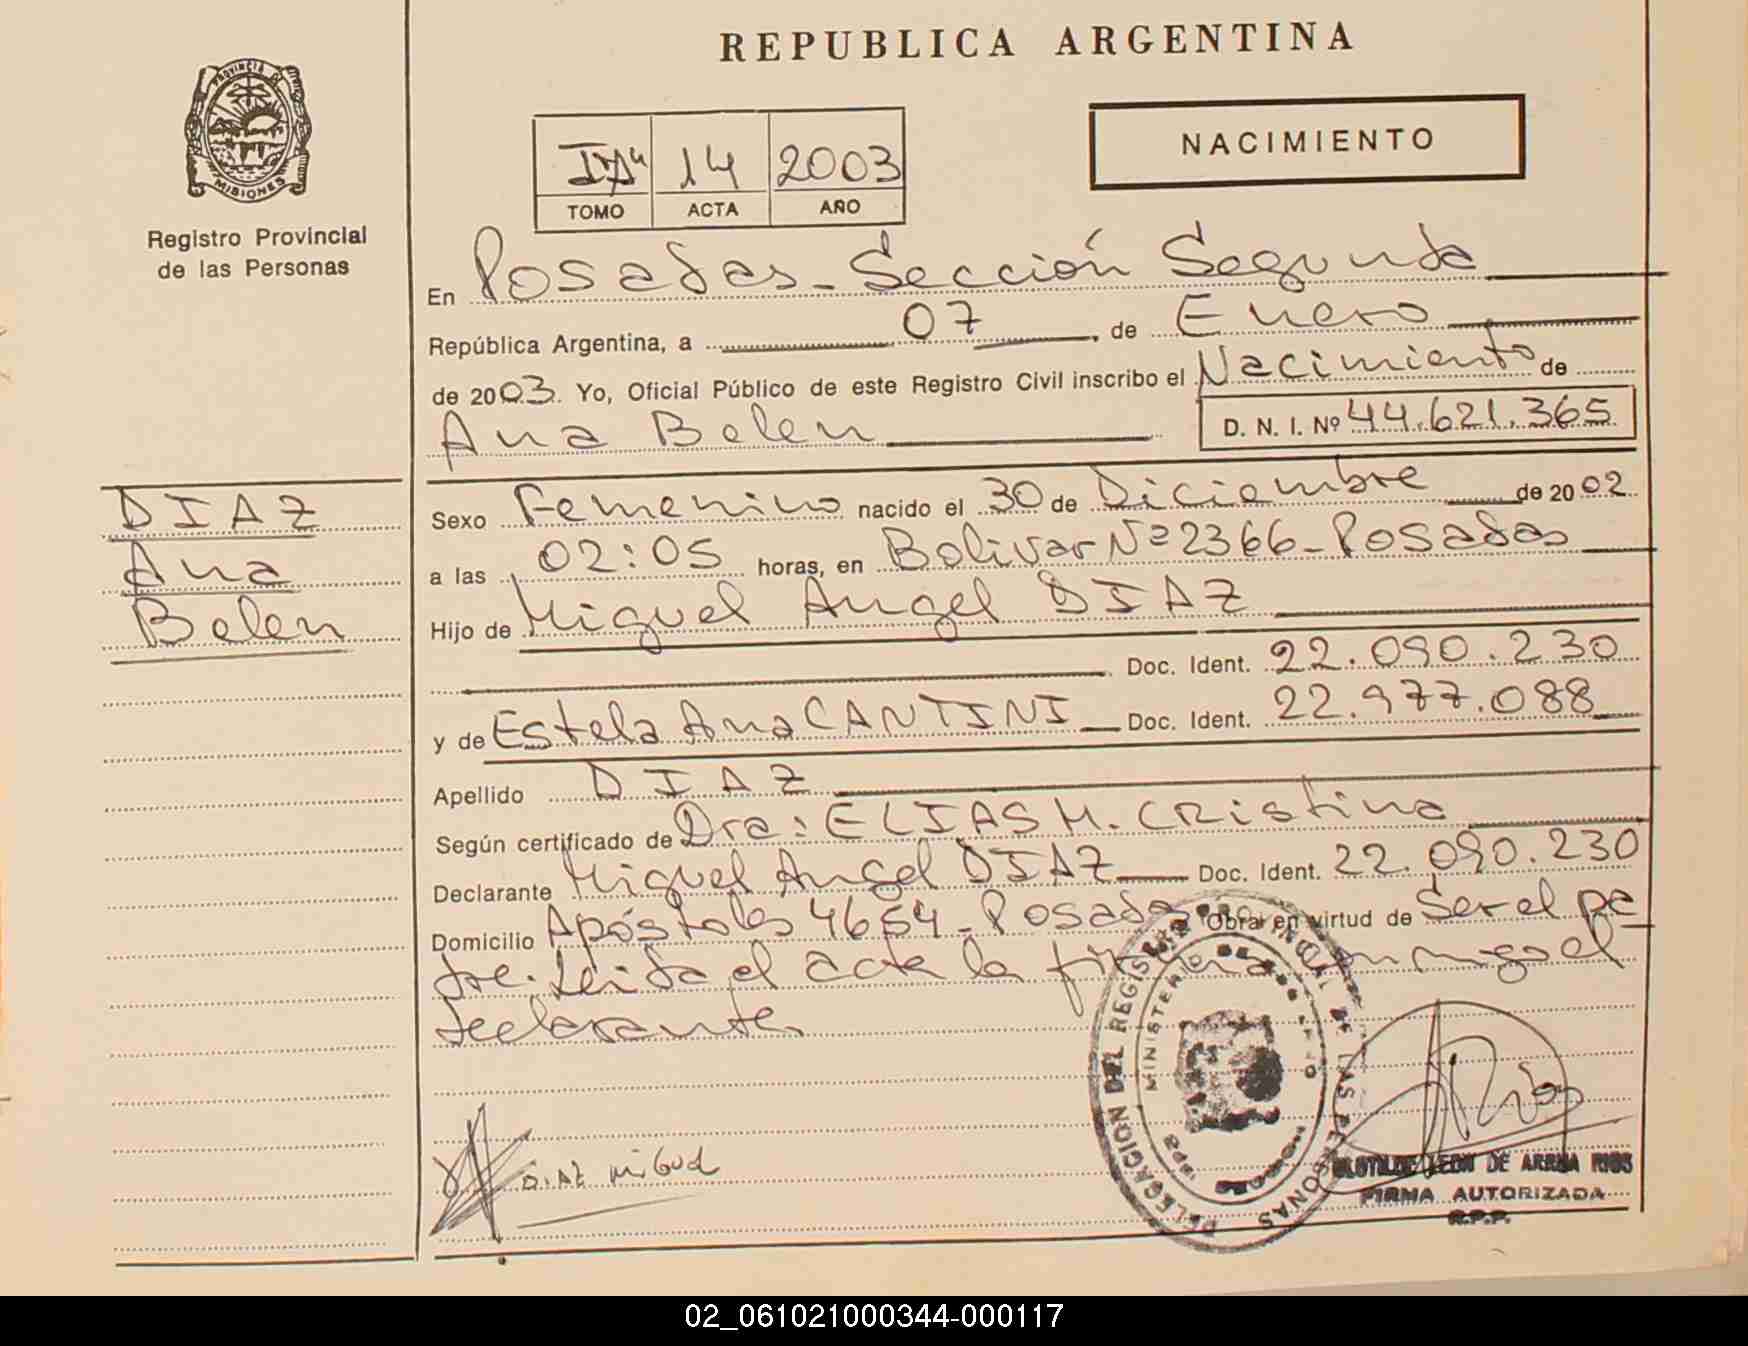 REPUBLICA ARGENTINA
PROVINCIA DE
MISIONES
Registro Provincial
de las Personas
14 2003
TOMO ACTA AÑO
NACIMIENTO
En Posadas - Sección Segunda
República Argentina, a 07, de Enero
de 2003. Yo, Oficial Público de este Registro Civil inscribo el Nacimiento de
Ana Belen
D. N. I. Nº 44.621.365
DIAZ
Ana
Belen
Sexo Femenino nacido el 30 de Diciembre de 2002
a las 02:05 horas, en Bolivar Nº 2366 - Posadas
Hijo de Miguel Angel DIAZ
Doc. Ident. 22.090.230
y de Estela Ana CANTINI Doc. Ident. 22.977.088
Apellido DIAZ
Según certificado de Dra: ELIAS M. CRistina
Declarante Miguel Angel DIAZ Doc. Ident. 22.090.230
Domicilio Apóstoles 4654 - Posadas Obra en virtud de Ser el pa
dre. Leida el acta la firma conmigo el
declarante
DIAZ MiGuel
DELEGACION DEL REGISTRO PROVINCIAL DE LAS PERSONAS
MINISTERIO DE
POSADAS
DE ARRUA RIOS
FIRMA AUTORIZADA
R.P.P.
02_061021000344-000117